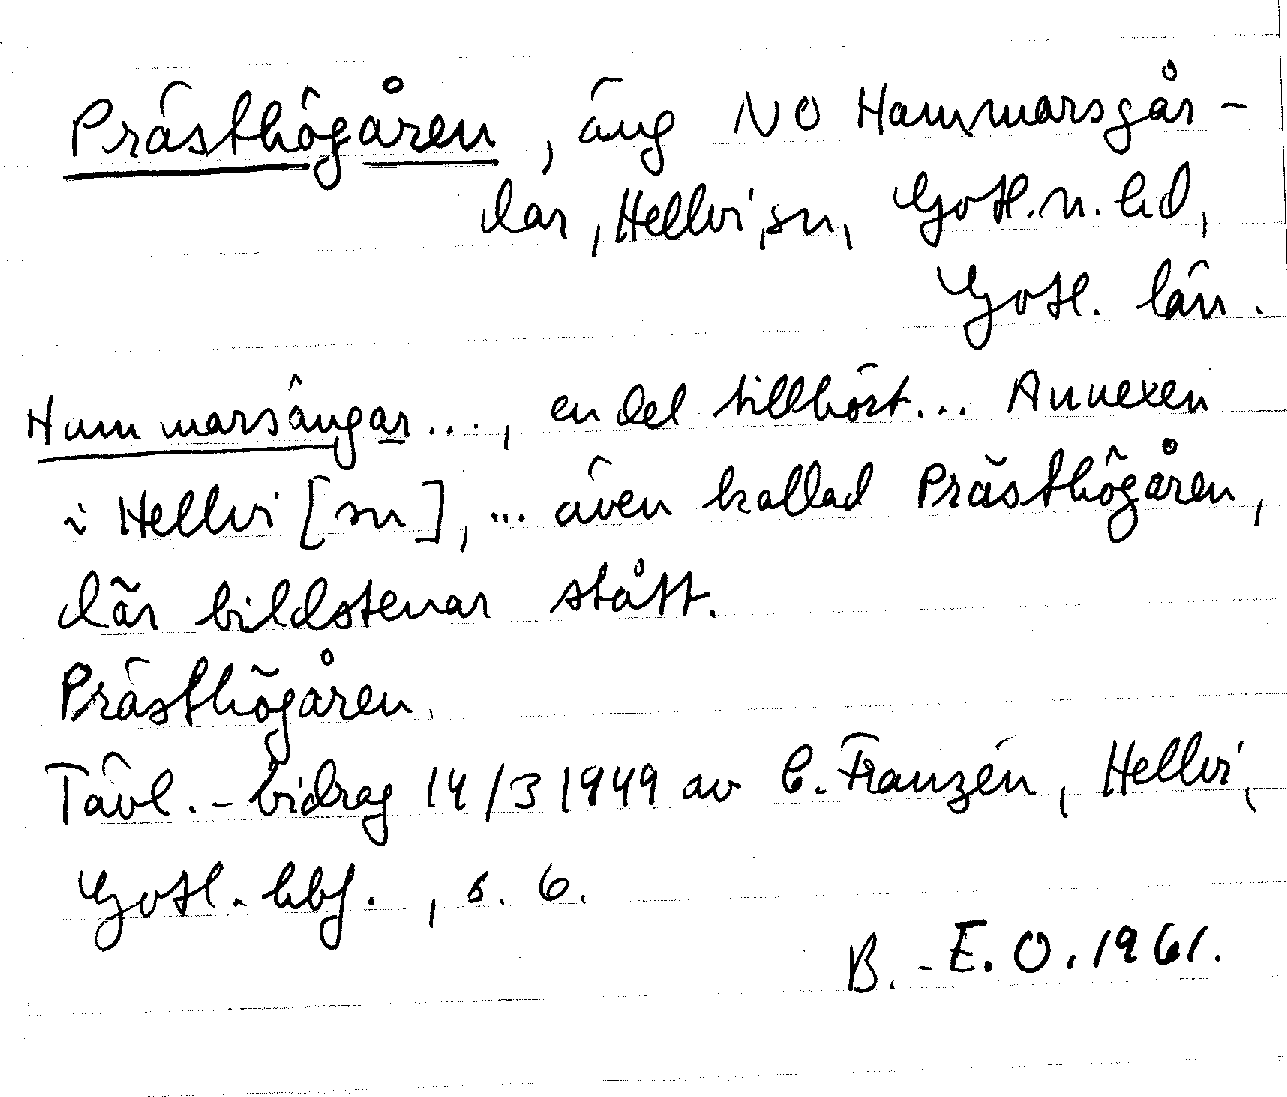 Prästhögåren, äng NO Hammarsgår-
dar, Hellvi sn, Gotl. n. hd,
Gotl. län.
Hammarsängar..., en del tillhört... Annexen
i Hellvi [sn], ... även kallad Prästhögåren,
där bildstenar stått.
Prästhögåren.
Tävl.-bidrag 14/3 1949 av C. Franzén, Hellvi,
Gotl. hbf., s. 6.
B.-E. O. 1961.